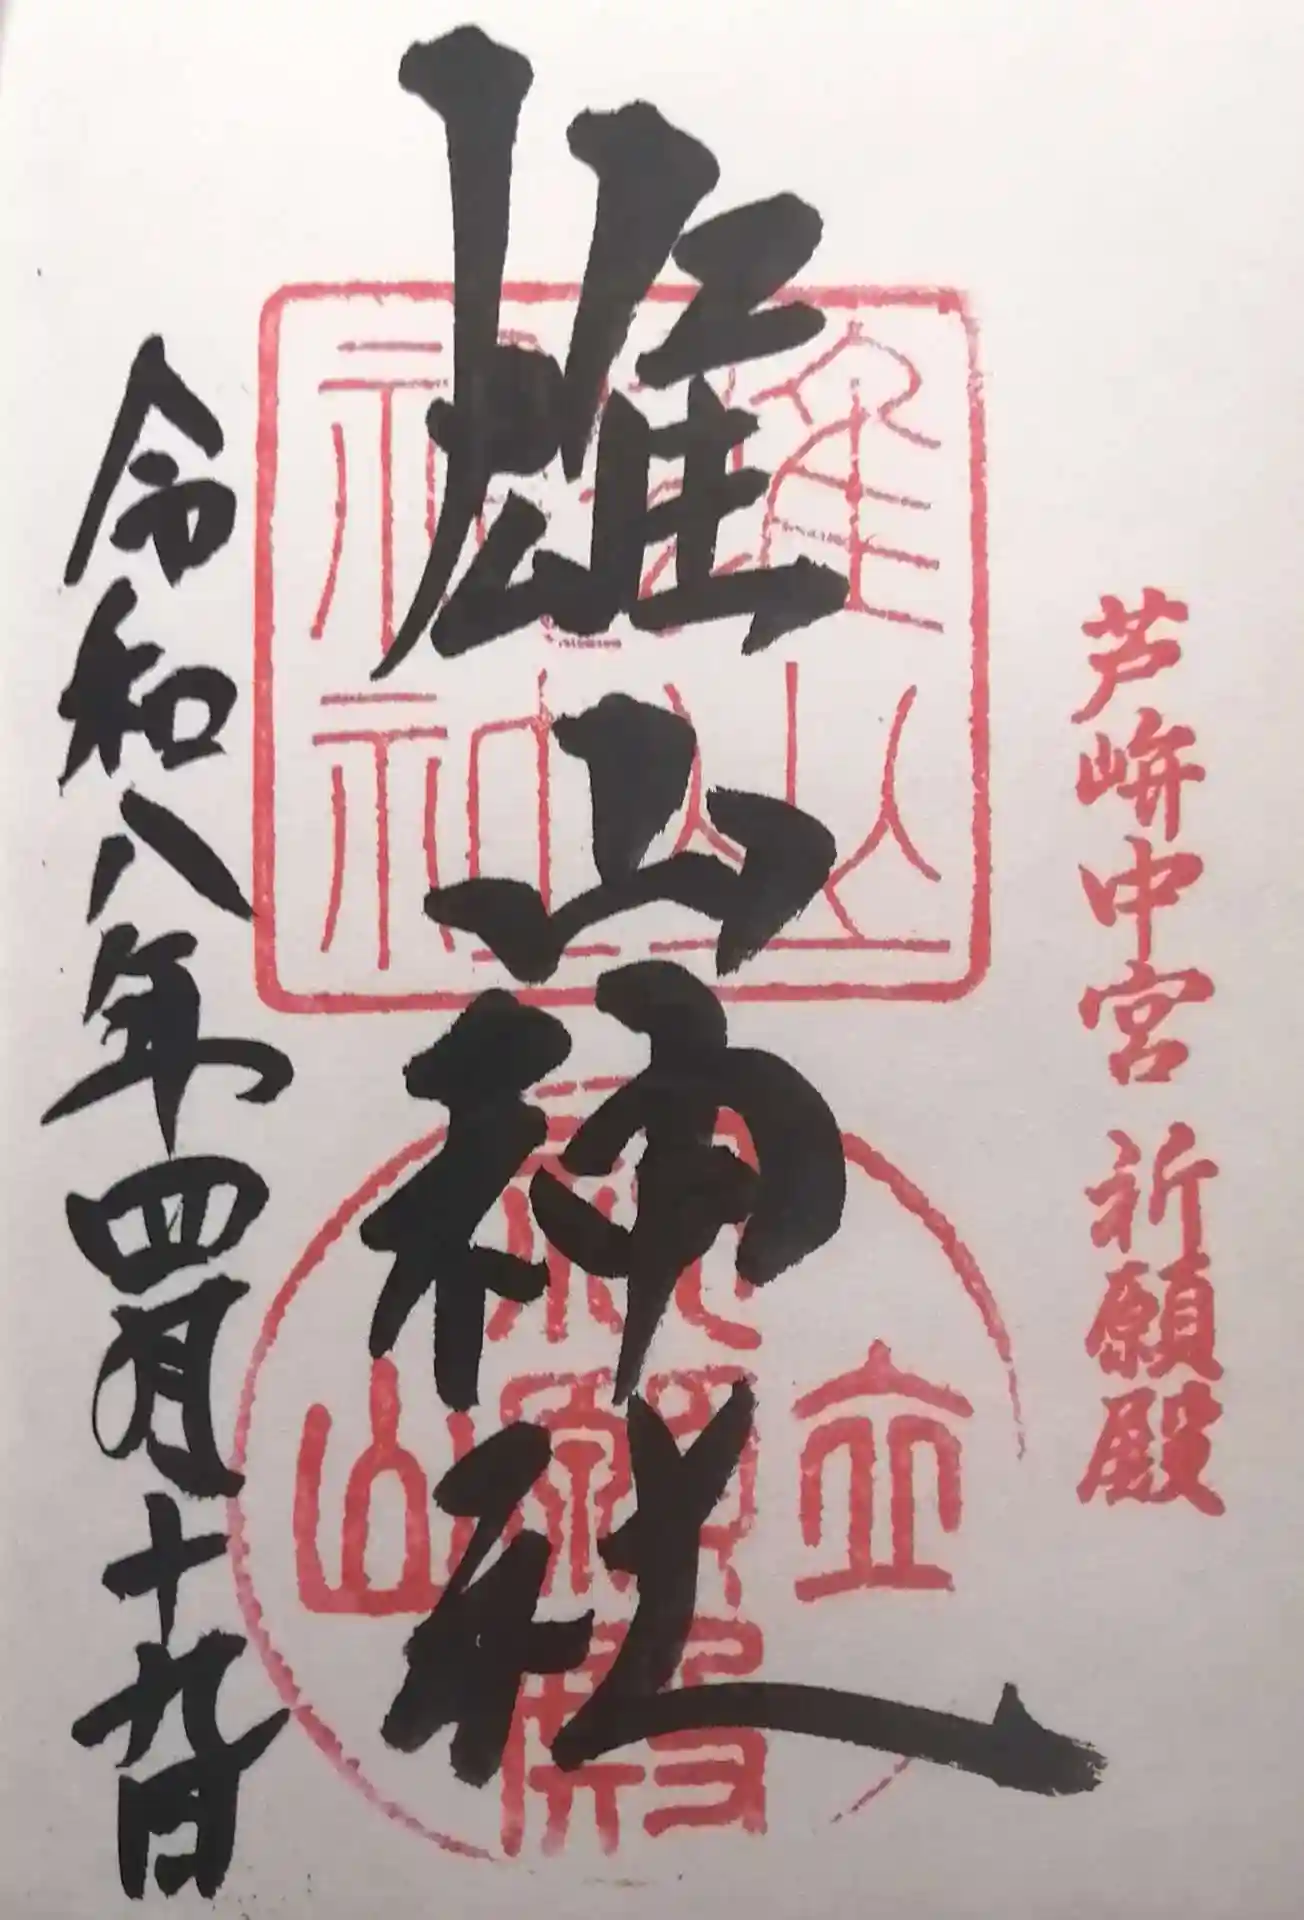 芦峅中宮 祈願殿
雄山神社
令和八年四月十九日
雄山神社
立山
祈願殿